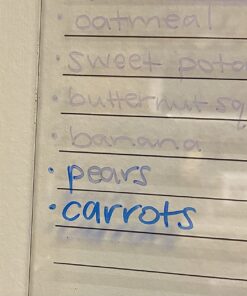 · oatmeal
· sweet pota
· butternut sq
· banana
· pears
· carrots